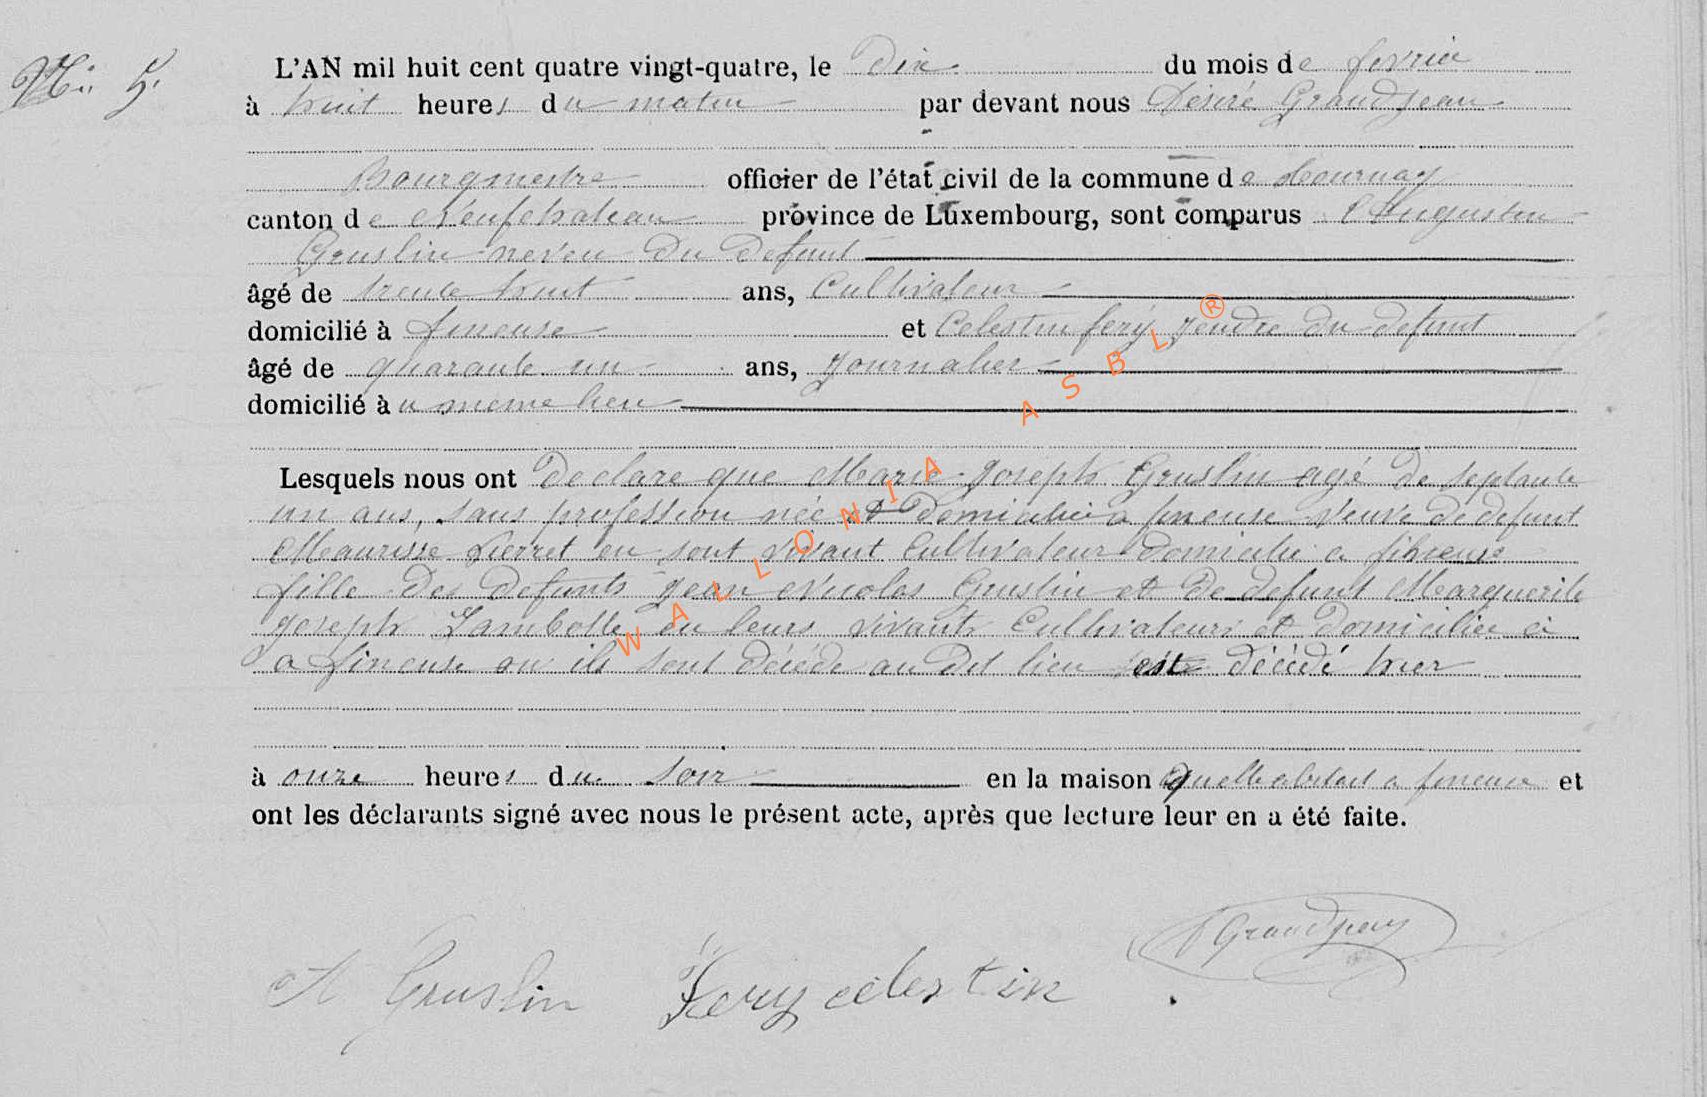 No 5.
L'AN mil huit cent quatre vingt-quatre, le Dix du mois de fevrier
à huit heures du matin par devant nous Désiré Grandjean
Bourgmestre officier de l'état civil de la commune de tournay
canton de Neufchateau province de Luxembourg, sont comparus Augustin
Gruslin neveu du defunt
âgé de trente huit ans, Cultivateur
domicilié à fineuse et Celestin fery gendre du defunt
âgé de quarante un ans, Journalier
domicilié au meme lieu
Lesquels nous ont declare que Marie Joseph Gruslin agé de septante
un ans, sans profession née et domiciliée a fineuse veuve de defunt
Maurisse Pierret en sont vivant Cultivateur domicilié a fineuse
fille des defunts Jean Nicolas Gruslin et de defunt Marguerite
Joseph Lambotte en leurs vivants Cultivateurs et domiciliée à
a fineuse ou ils sont décéde au dit lieu est décédé hier
à onze heures du soir en la maison quelle abitait a fineuse et
ont les déclarants signé avec nous le présent acte, après que lecture leur en a été faite.
A Gruslin Fery celestin D Grandjean
WALLONIA ASBL ®